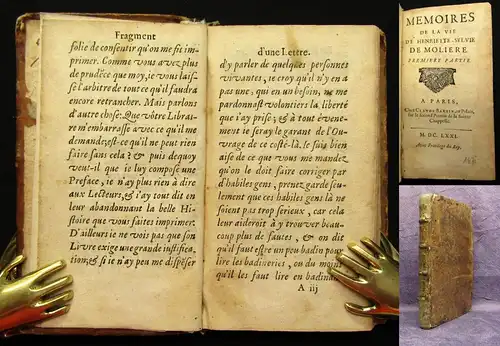 Fragment
folie de consentir qu'on me fit im-
primer. Comme vous avez plus
de prudẽce que moy, je vous lais-
se l'arbitre de tout ce qu'il faudra
encore retrancher. Mais parlons
d'autre chose: Que vôtre Librai-
re m'embarrasse avec ce qu'il me
demande; est-ce qu'il ne peut rien
faire sans cela? & puis dequoy
veut-il que je luy compose une
Preface, je n'ay plus rien à dire
aux Lecteurs, & j'ay tout dit en
leur abandonnant la belle His-
toire que vous faites imprimer.
D'ailleurs je ne vois pas que son
Livre exige une grande justifica-
tion, & si je n'ay peu me dispẽser
d'une Lettre.
d'y parler de quelques personnes
vivantes, je croy qu'il n'y en a
pas une; qui en un besoin, ne me
pardonnast volontiers la liberté
que j'ay prise; & à tout évene-
ment je seray le garant de l'Ou-
vrage de ce costé-là. Je suis bien
aise de ce que vous me mandez
qu'on le doit faire corriger par
d'habiles gens, prenez garde seu-
lement que ces habiles gens là ne
soient pas trop serieux, car cela
leur aideroit à y trouver beau-
coup plus de fautes, & on dit
qu'il faut estre un peu badin pour
lire les badineries, ou du moins
qu'il les faut lire en badinant
A iij
MEMOIRES
DE LA VIE
DE HENRIETTE-SYLVIE
DE MOLIERE.
PREMIERE PARTIE.
A PARIS,
Chez CLAUDE BARBIN, au Palais,
sur le Second Perron de la Sainte
Chappelle.
M. DC. LXXI.
Avec Privilege du Roy.